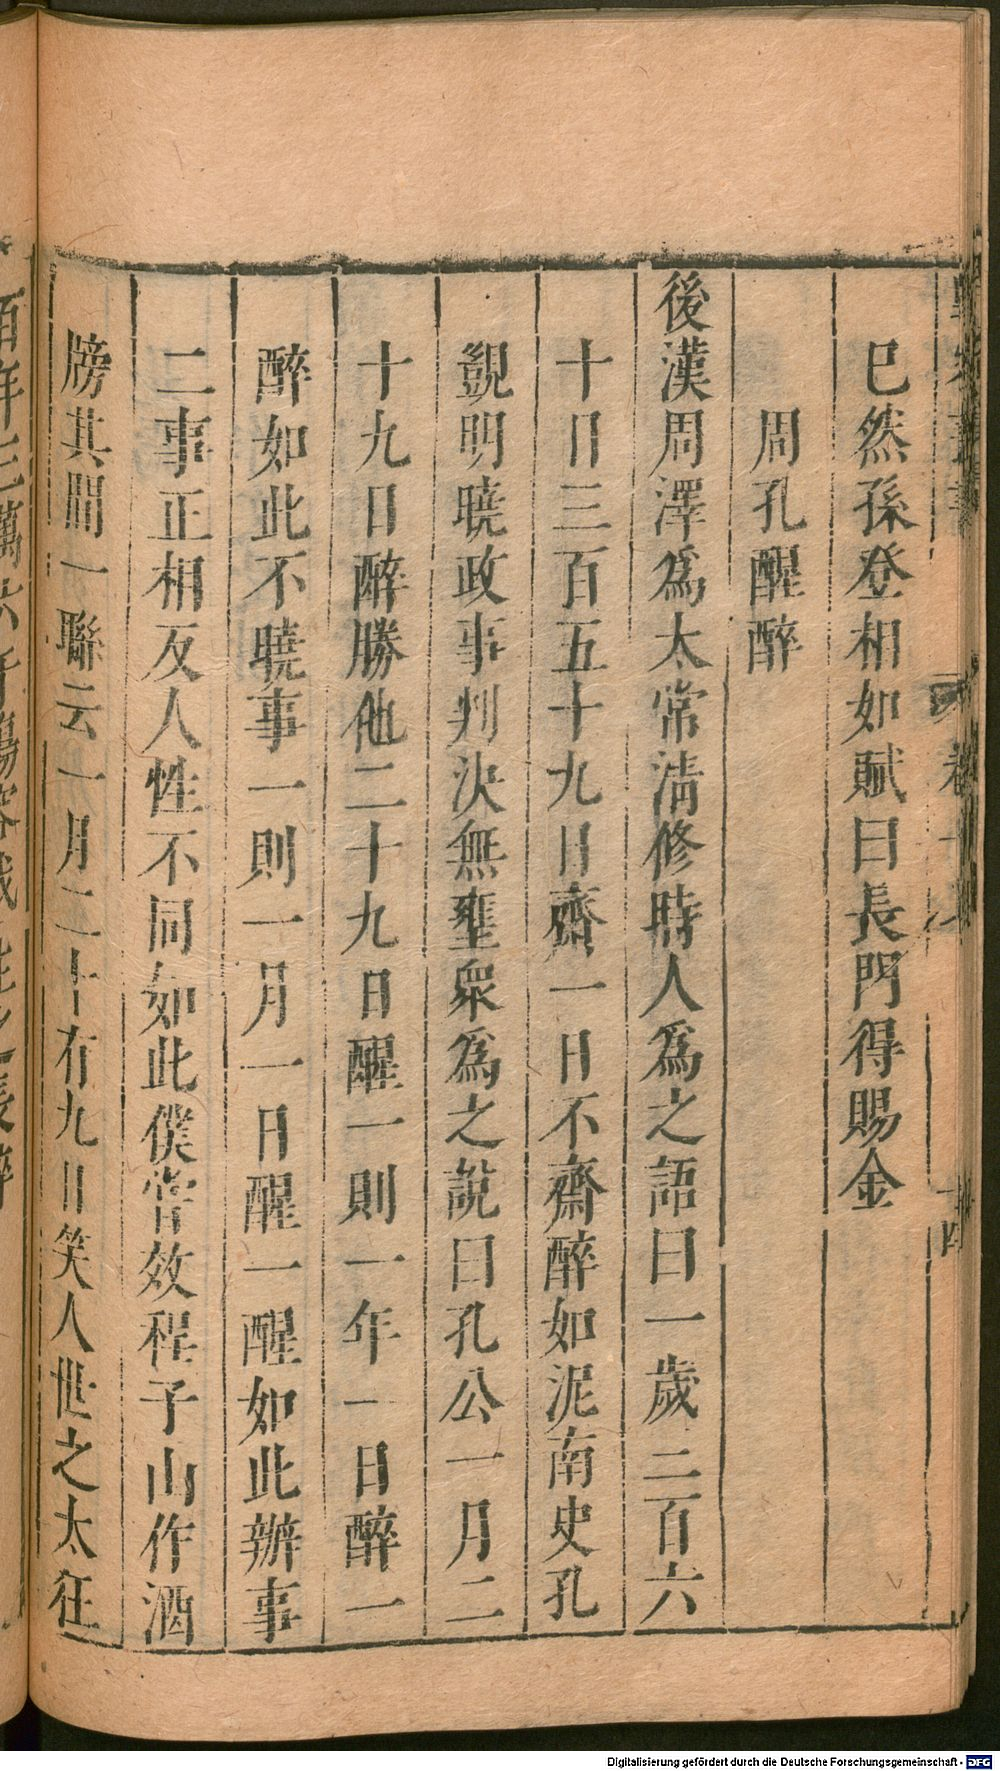 已然孫登相如賦曰長門得賜金
周孔醒醉
後漢周澤爲太常淸修時人爲之語曰一歲三百六
十日三百五十九日齋一日不齋醉如泥南史孔
覬明曉政事判決無壅衆爲之說曰孔公一月二
十九日醉勝他二十九日醒一則一年一日醉一
醉如此不曉事一則一月一日醒一醒如此辦事
二事正相反人性不同如此僕嘗效程子山作酒
牓其間一聯云一月二十有九日笑人世之太狂
Digitalisierung gefördert durch die Deutsche Forschungsgemeinschaft - DFG